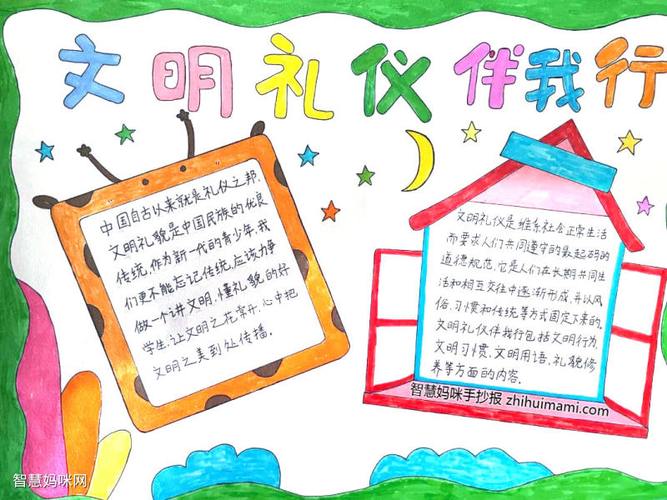 文明礼仪伴我行
中国自古以来就是礼仪之邦,
文明礼貌是中国民族的优良
传统,作为新一代的青少年,我
们更不能忘记传统,应该力争
做一个讲文明、懂礼貌的好
学生.让文明之花常开心中把
文明之美到处传播.
文明礼仪是维系社会正常生活
而要求人们共同遵守的最起码的
道德规范,它是人们在长期共同生
活和相互交往中逐渐形成,并以风
俗、习惯和传统等方式固定下来的.
文明礼仪伴我行包括文明行为
文明习惯、文明用语、礼貌修
养等方面的内容.
智慧妈咪手抄报 zhihuimami.com
智慧妈咪网